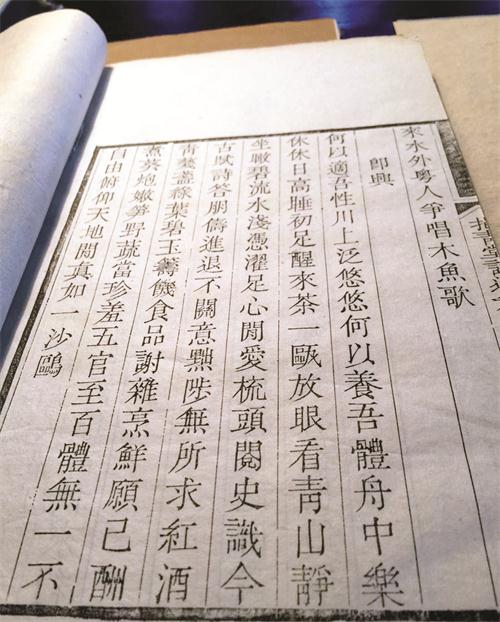 來水外粵人爭唱木魚歌
即興
何以適吾性川上泛悠悠何以養吾體舟中樂
休休日高睡初足醒來茶一甌放眼看青山靜
坐瞰碧流水淺憑濯足心閒愛梳頭閱史識今
古賦詩答朋儔進退不關意黜陟無所求紅酒
青盞綠葉碧玉籌饑食品謝雜烹鮮願己酬
煮葵炮嫩笋野蔬當珍羞五官至百體無一不
自由俯仰天地閒真如一沙鷗